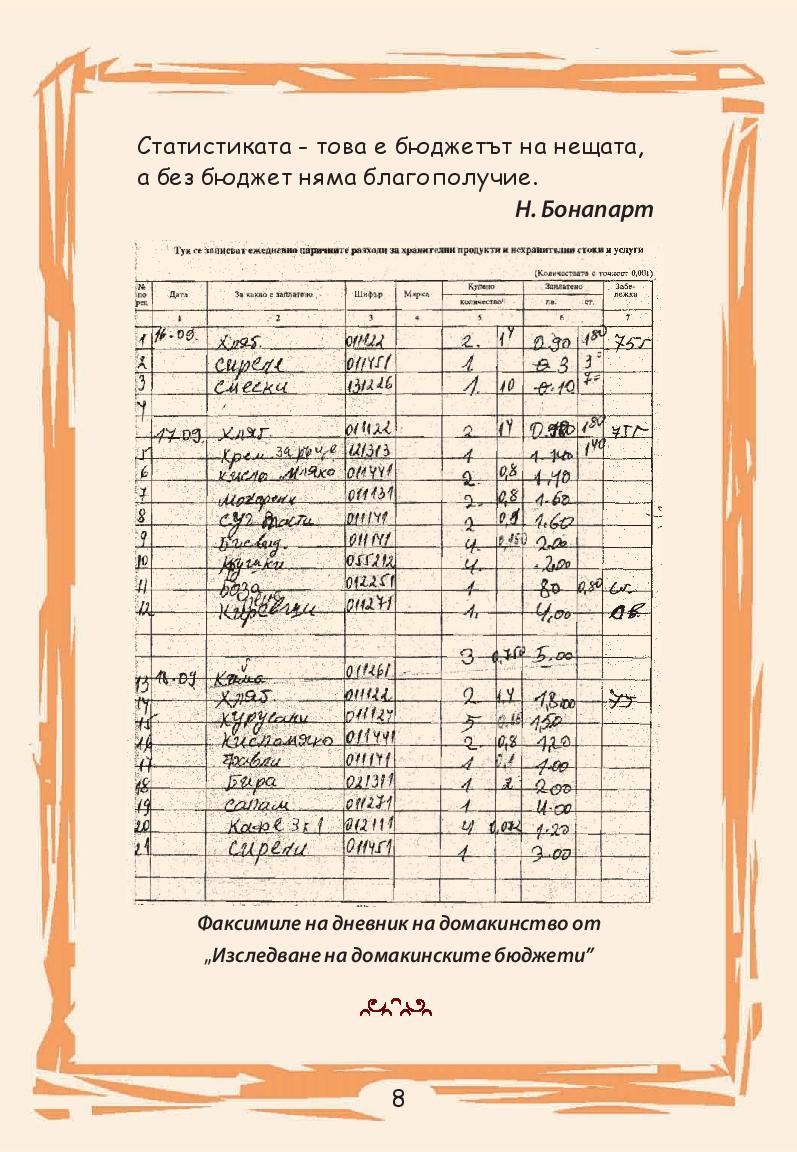 Статистиката - това е бюджетът на нещата,
а без бюджет няма благополучие.
Н. Бонапарт
Тук се записват ежедневно паричните разходи за хранителни продукти и нехранителни стоки и услуги
(Количествата с точност 0,001)
№ по ред Дата За какво е заплатено Шифър Марка Купено количество Заплатено лв. ст. Забележки
1 2 3 4 5 6 7
1 16.09. Хляб 011122 2. 14 0.90 180
2 сирене 011451 1 3
3 смески 131226 1. 10 0.10
4
17.09. Хляб 011122 2 14 180
5 Крем за ръце 121313 1 140
6 кисло мляко 011441 2. 0,8 1.40
7 011131 2. 0,8 1.60
8 011141 2 1.60
9 011141 4. 0,150 2.00
10 055212 4. 2.00
11 Боза 012251 1 80 0,80
12 011271 1. 4,00
3 0,750 5.00
13 18.09 Кайма 011261
14 Хляб. 011122 2 1,4 1,80
15 011127 5 1,50
16 Кисло мляко 011441 2. 0,8 1,20
17 011141 1 1.00
18 Бира 021311 1 2 2.00
19 салам 011271 1 4.00
20 Кафе 3в1 012111 4 0,072 1.20
21 сирени 011451 1. 3.00
Факсимиле на дневник на домакинство от
„Изследване на домакинските бюджети”
8